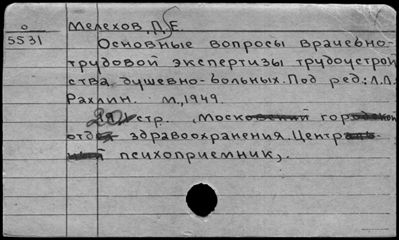 О
5531
Мелехов, Д. Е.
Основные вопросы врачебно-
трудовой экспертизы трудоустрой
ства душевно-больных. Под ред: Л.Л.
Рахлин. М., 1949.
20 стр. Московский городской
отдел здравоохранения. Централь
ный психоприемник,.